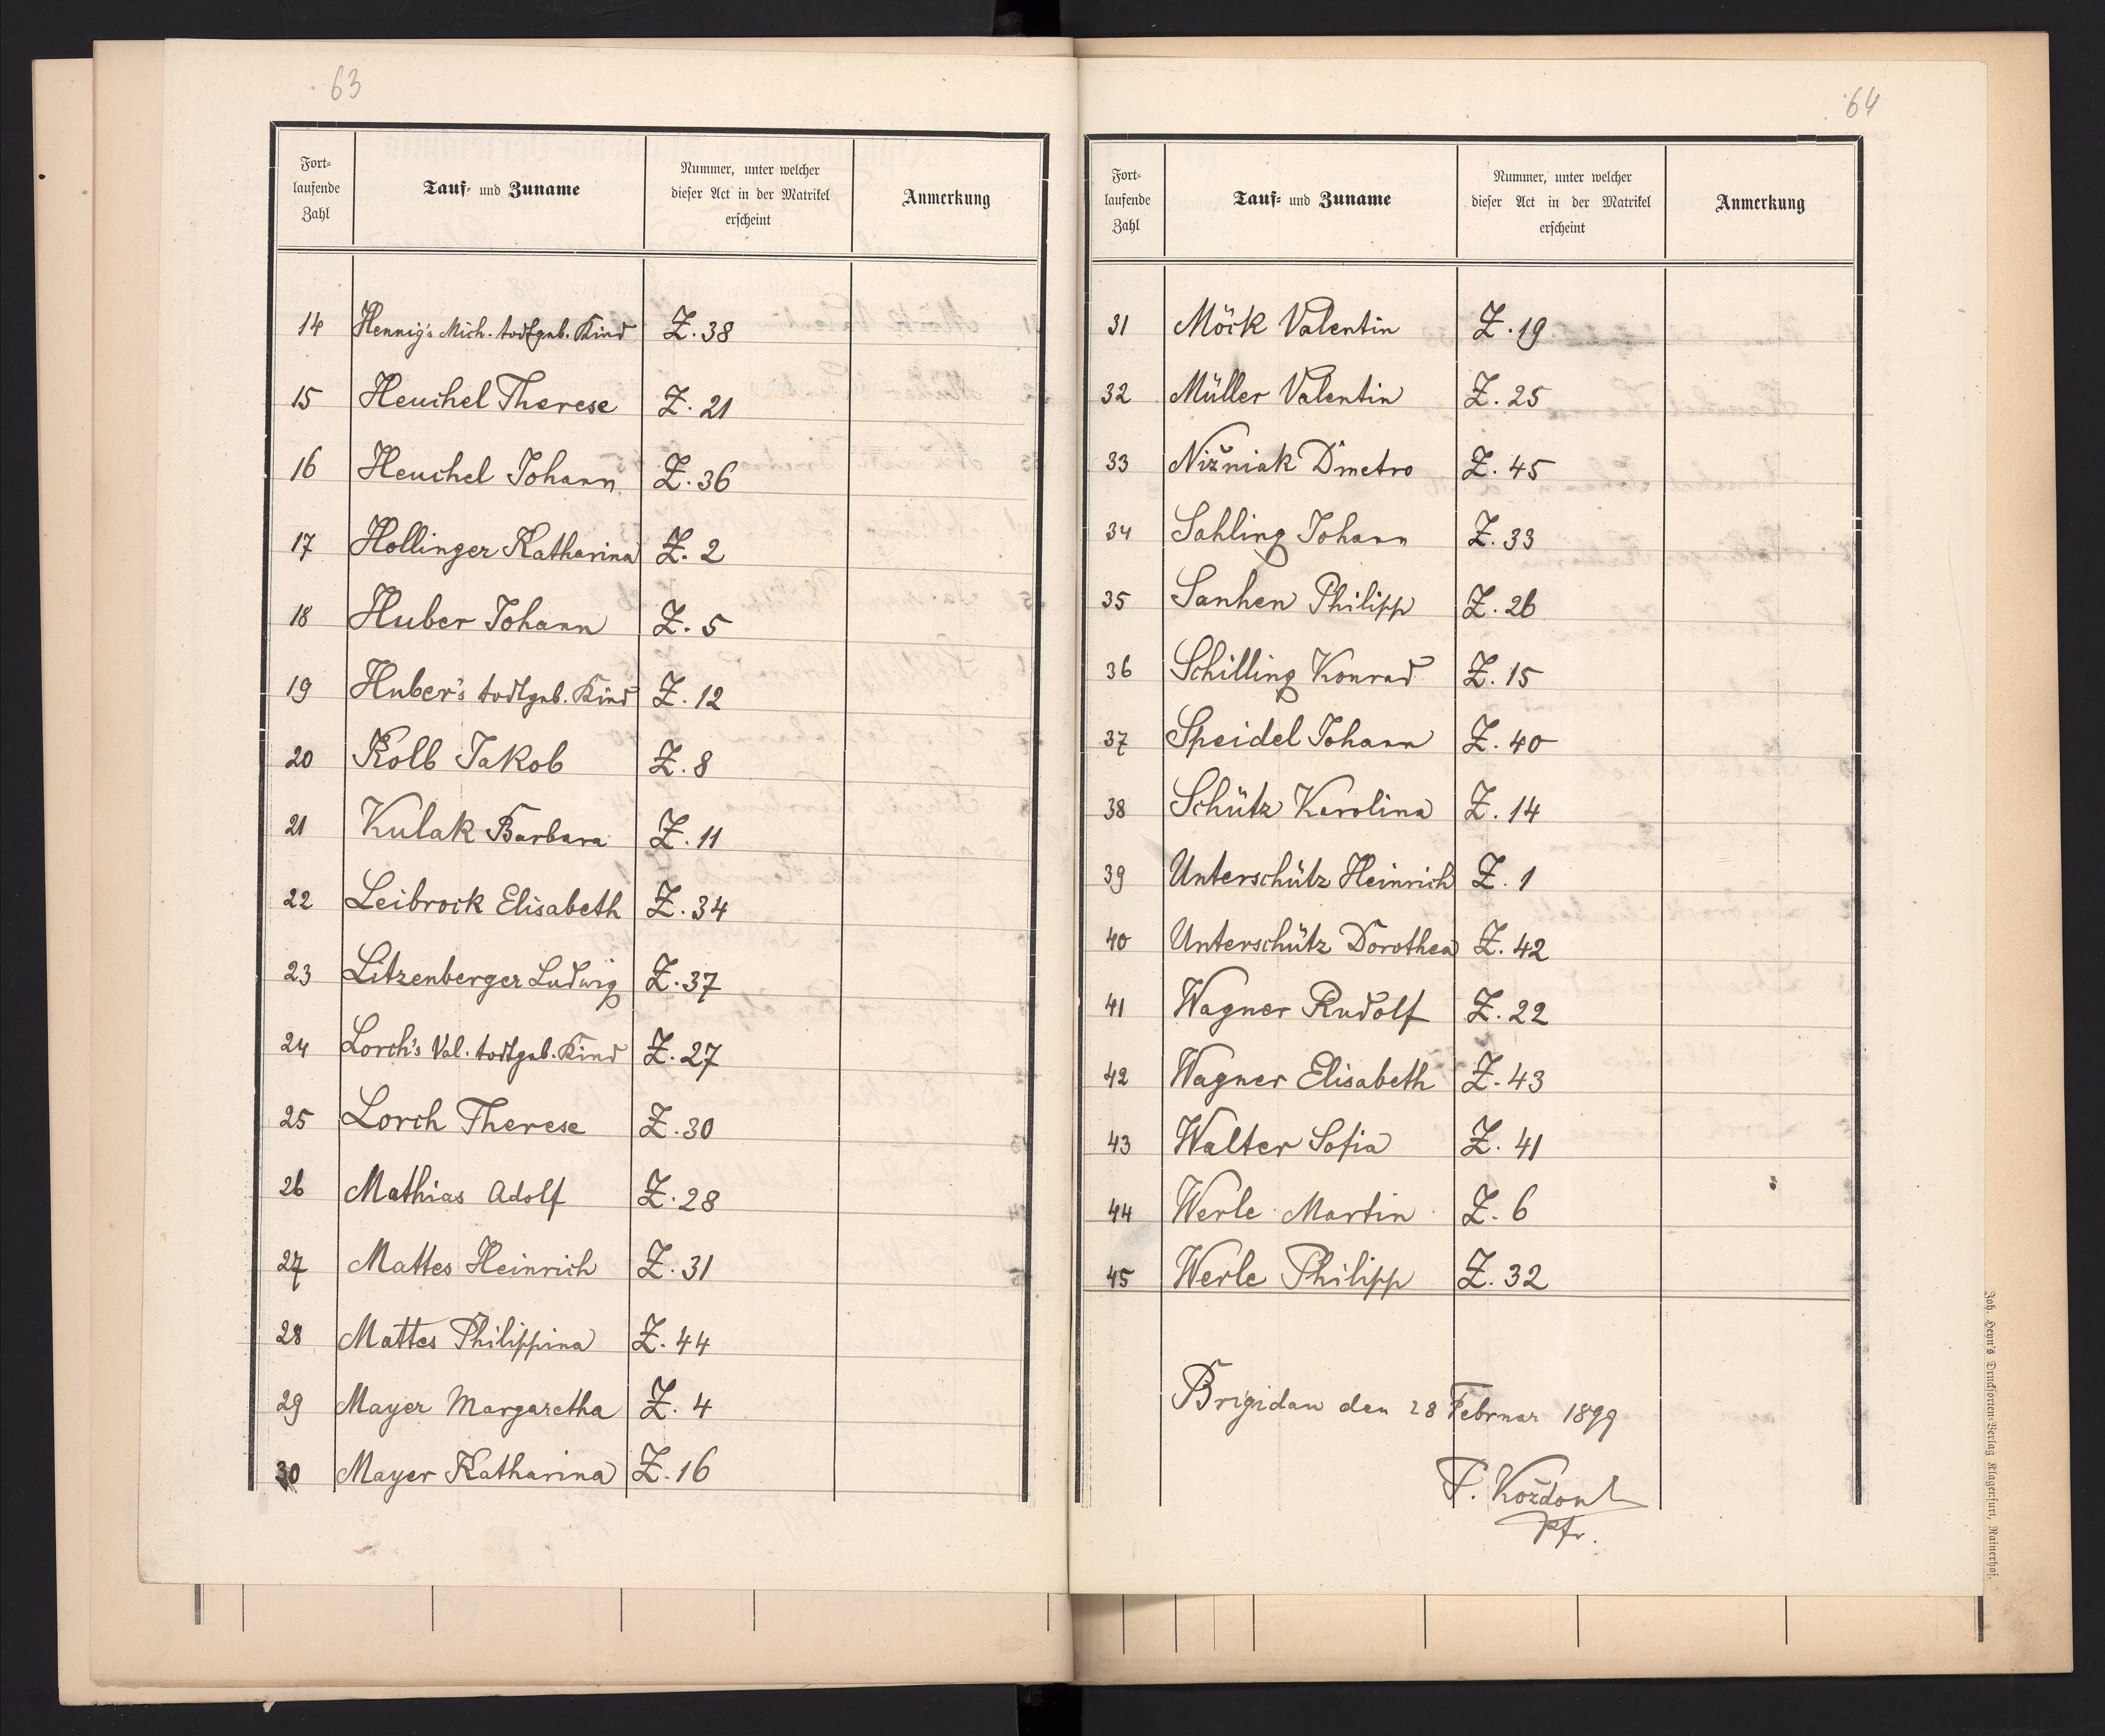 63
Fort-
laufende
Zahl
Tauf- und Zuname
Nummer, unter welcher
dieser Act in der Matrikel
erscheint
Anmerkung
14 Hennig's Mich. todtgeb. Kind Z. 38
15 Heuchel Therese Z. 21
16 Heuchel Johann Z. 36
17 Hollinger Katharina Z. 2
18 Huber Johann Z. 5
19 Huber's todtgeb. Kind Z. 12
20 Kolb Jakob Z. 8
21 Kulak Barbara Z. 11
22 Leibrock Elisabeth Z. 34
23 Litzenberger Ludwig Z. 37
24 Lorch's Val. todtgeb. Kind Z. 27
25 Lorch Therese Z. 30
26 Mathias Adolf Z. 28
27 Mattes Heinrich Z. 31
28 Mattes Philippina Z. 44
29 Mayer Margaretha Z. 4
30 Mayer Katharina Z. 16
64
Fort-
laufende
Zahl
Tauf- und Zuname
Nummer, unter welcher
dieser Act in der Matrikel
erscheint
Anmerkung
31 Möck Valentin Z. 19
32 Müller Valentin Z. 25
33 Nižniak Dmetro Z. 45
34 Sahling Johann Z. 33
35 Sanhen Philipp Z. 26
36 Schilling Konrad Z. 15
37 Speidel Johann Z. 40
38 Schütz Karolina Z. 14
39 Unterschütz Heinrich Z. 1
40 Unterschütz Dorothea Z. 42
41 Wagner Rudolf Z. 22
42 Wagner Elisabeth Z. 43
43 Walter Sofia Z. 41
44 Werle Martin Z. 6
45 Werle Philipp Z. 32
Brigidau den 28 Februar 1899
F. Koždon
Pfr.
Joh. Heyn's Drucksorten-Verlag Klagenfurt, Rainerhof.